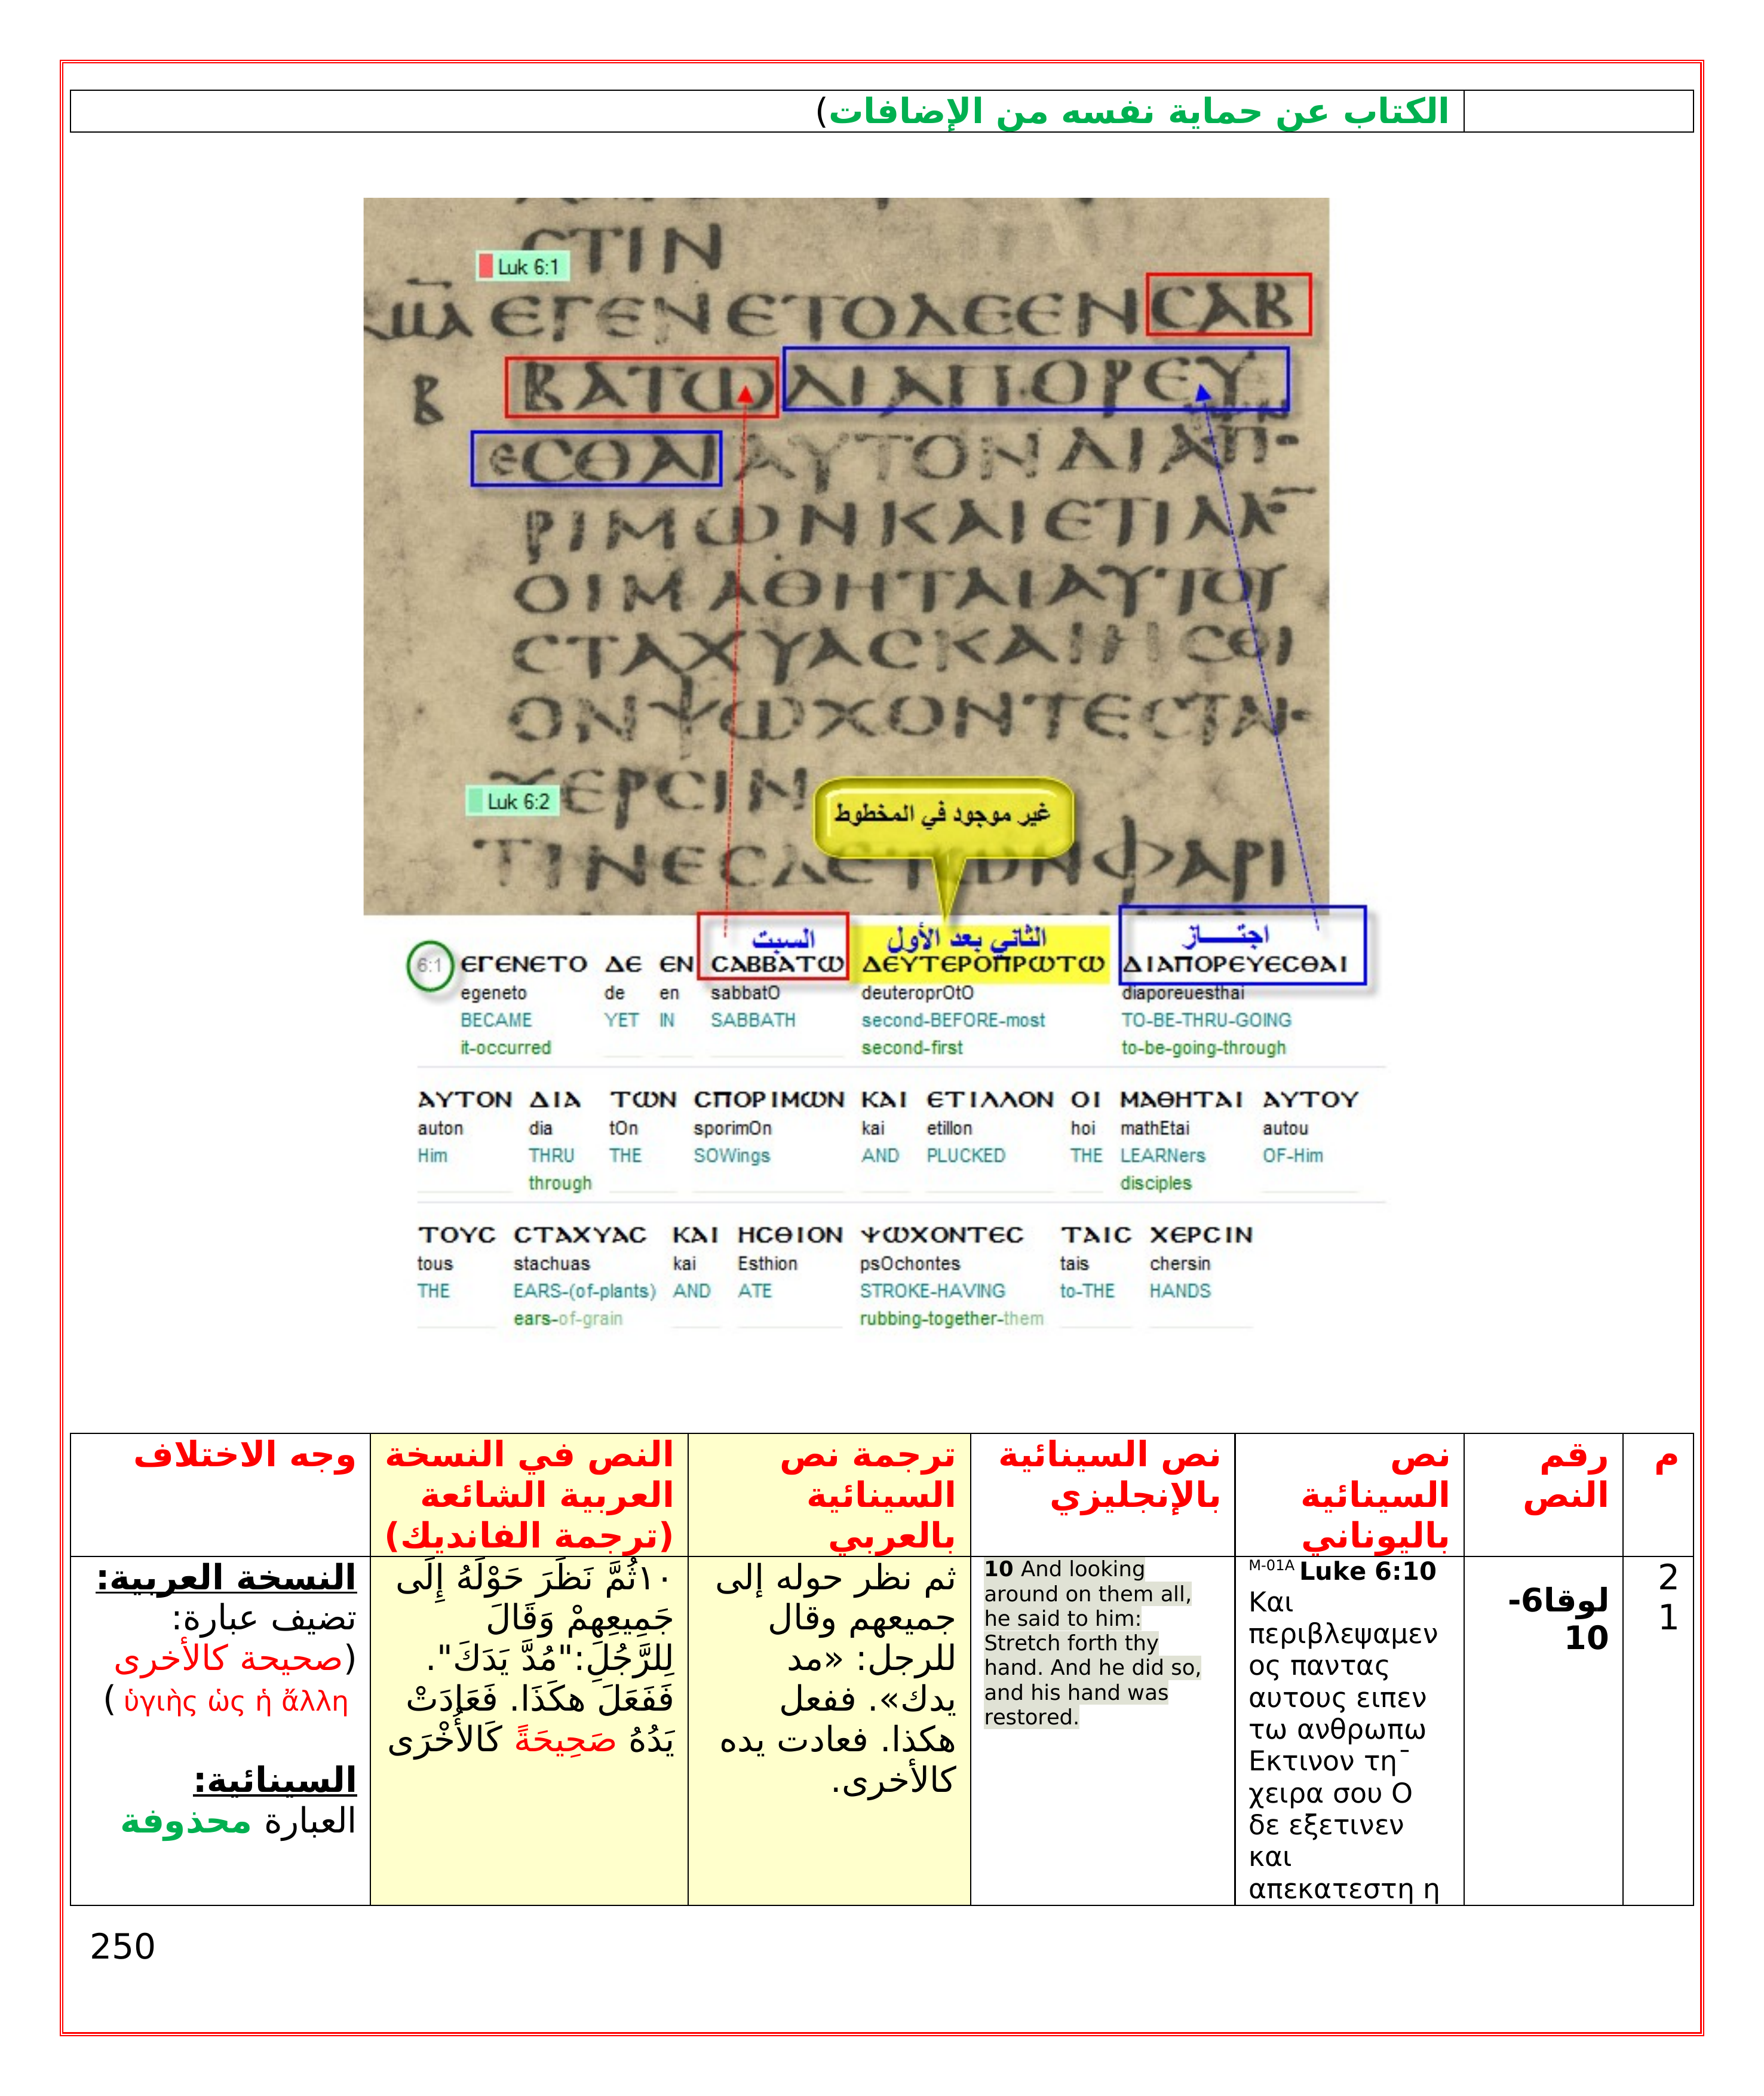 الكتاب عن حماية نفسه من الإضافات)
CTIN
Luk 6:1
ΕΓΕΝΕΤΟΔΕΕΝCΑΒ
Β
ΒΑΤωΔΙΑΠΟΡΕΥ
ΕCΘΑΙΑΥΤΟΝΔΙΑ
ΡΙΜωΝΚΑΙΕΤΙΛΛ
ΟΙΜΑΘΗΤΑΙΑΥΤΟΥ
CΤΑΧΥΑCΚΑΙΗCΘΙ
ΟΝΨωΧΟΝΤΕCΤΑΙ
ΧΕΡCΙΝ
Luk 6:2
غير موجود في المخطوط
ΤΙΝΕCΔΕΤωΝΦΑΡΙ
السبت الثاني بعد الأول اجتـــاز
6:1 ΕΓΕΝΕΤΟ ΔΕ ΕΝ CΑΒΒΑΤω ΔΕΥΤΕΡΟΠΡωΤω ΔΙΑΠΟΡΕΥΕCΘΑΙ
egeneto de en sabbatO deuteroprOtO diaporeuesthai
BECAME YET IN SABBATH second-BEFORE-most TO-BE-THRU-GOING
it-occurred second-first to-be-going-through
ΑΥΤΟΝ ΔΙΑ ΤωΝ CΠΟΡΙΜωΝ ΚΑΙ ΕΤΙΛΛΟΝ ΟΙ ΜΑΘΗΤΑΙ ΑΥΤΟΥ
auton dia tOn sporimOn kai etillon hoi mathEtai autou
Him THRU THE SOWings AND PLUCKED THE LEARNers OF-Him
through disciples
ΤΟΥC CΤΑΧΥΑC ΚΑΙ ΗCΘΙΟΝ ΨωΧΟΝΤΕC ΤΑΙC ΧΕΡCΙΝ
tous stachuas kai Esthion psOchontes tais chersin
THE EARS-(of-plants) AND ATE STROKE-HAVING to-THE HANDS
ears-of-grain rubbing-together-them
م
رقم
النص
نص
السينائية
باليوناني
نص السينائية
بالإنجليزي
ترجمة نص
السينائية
بالعربي
النص في النسخة
العربية الشائعة
(ترجمة الفانديك)
وجه الاختلاف
2
1
لوقا6-
10
M-01A Luke 6:10
Και
περιβλεψαμεν
ος παντας
αυτους ειπεν
τω ανθρωπω
Εκτινον τη¯
χειρα σου Ο
δε εξετινεν
και
απεκατεστη η
10 And looking
around on them all,
he said to him:
Stretch forth thy
hand. And he did so,
and his hand was
restored.
ثم نظر حوله إلى
جميعهم وقال
للرجل: «مد
يدك». ففعل
هكذا. فعادت يده
كالأخرى.
١٠ثُمَّ نَظَرَ حَوْلَهُ إِلَى
جَمِيعِهِمْ وَقَالَ
لِلرَّجُلِ:"مُدَّ يَدَكَ".
فَفَعَلَ هكَذَا. فَعَادَتْ
يَدُهُ صَحِيحَةً كَالأُخْرَى
النسخة العربية:
تضيف عبارة:
(صحيحة كالأخرى
ὑγιὴς ὡς ἡ ἄλλη )
السينائية:
العبارة محذوفة
250